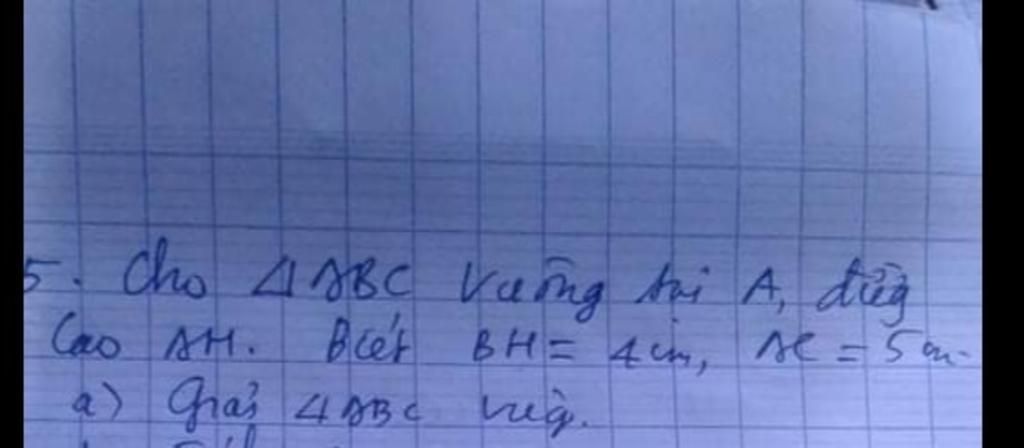 5. Cho △ABC vuông tại A, đg
Cao AH. Biết BH = 4cm, AC = 5cm.
a) Giải △ABC vuông.